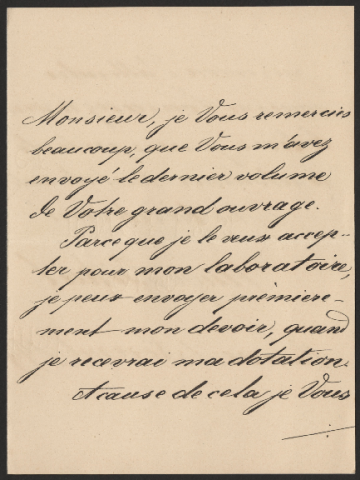 Monsieur, je Vous remercies
beaucoup, que Vous m'avez
envoyé le dernier volume
de Votre grand ouvrage.
Parceque je le veux accep-
ter pour mon laboratoire,
je peux envoyer première-
ment mon devoir, quand
je recevrai ma dotation.
A cause de cela je Vous